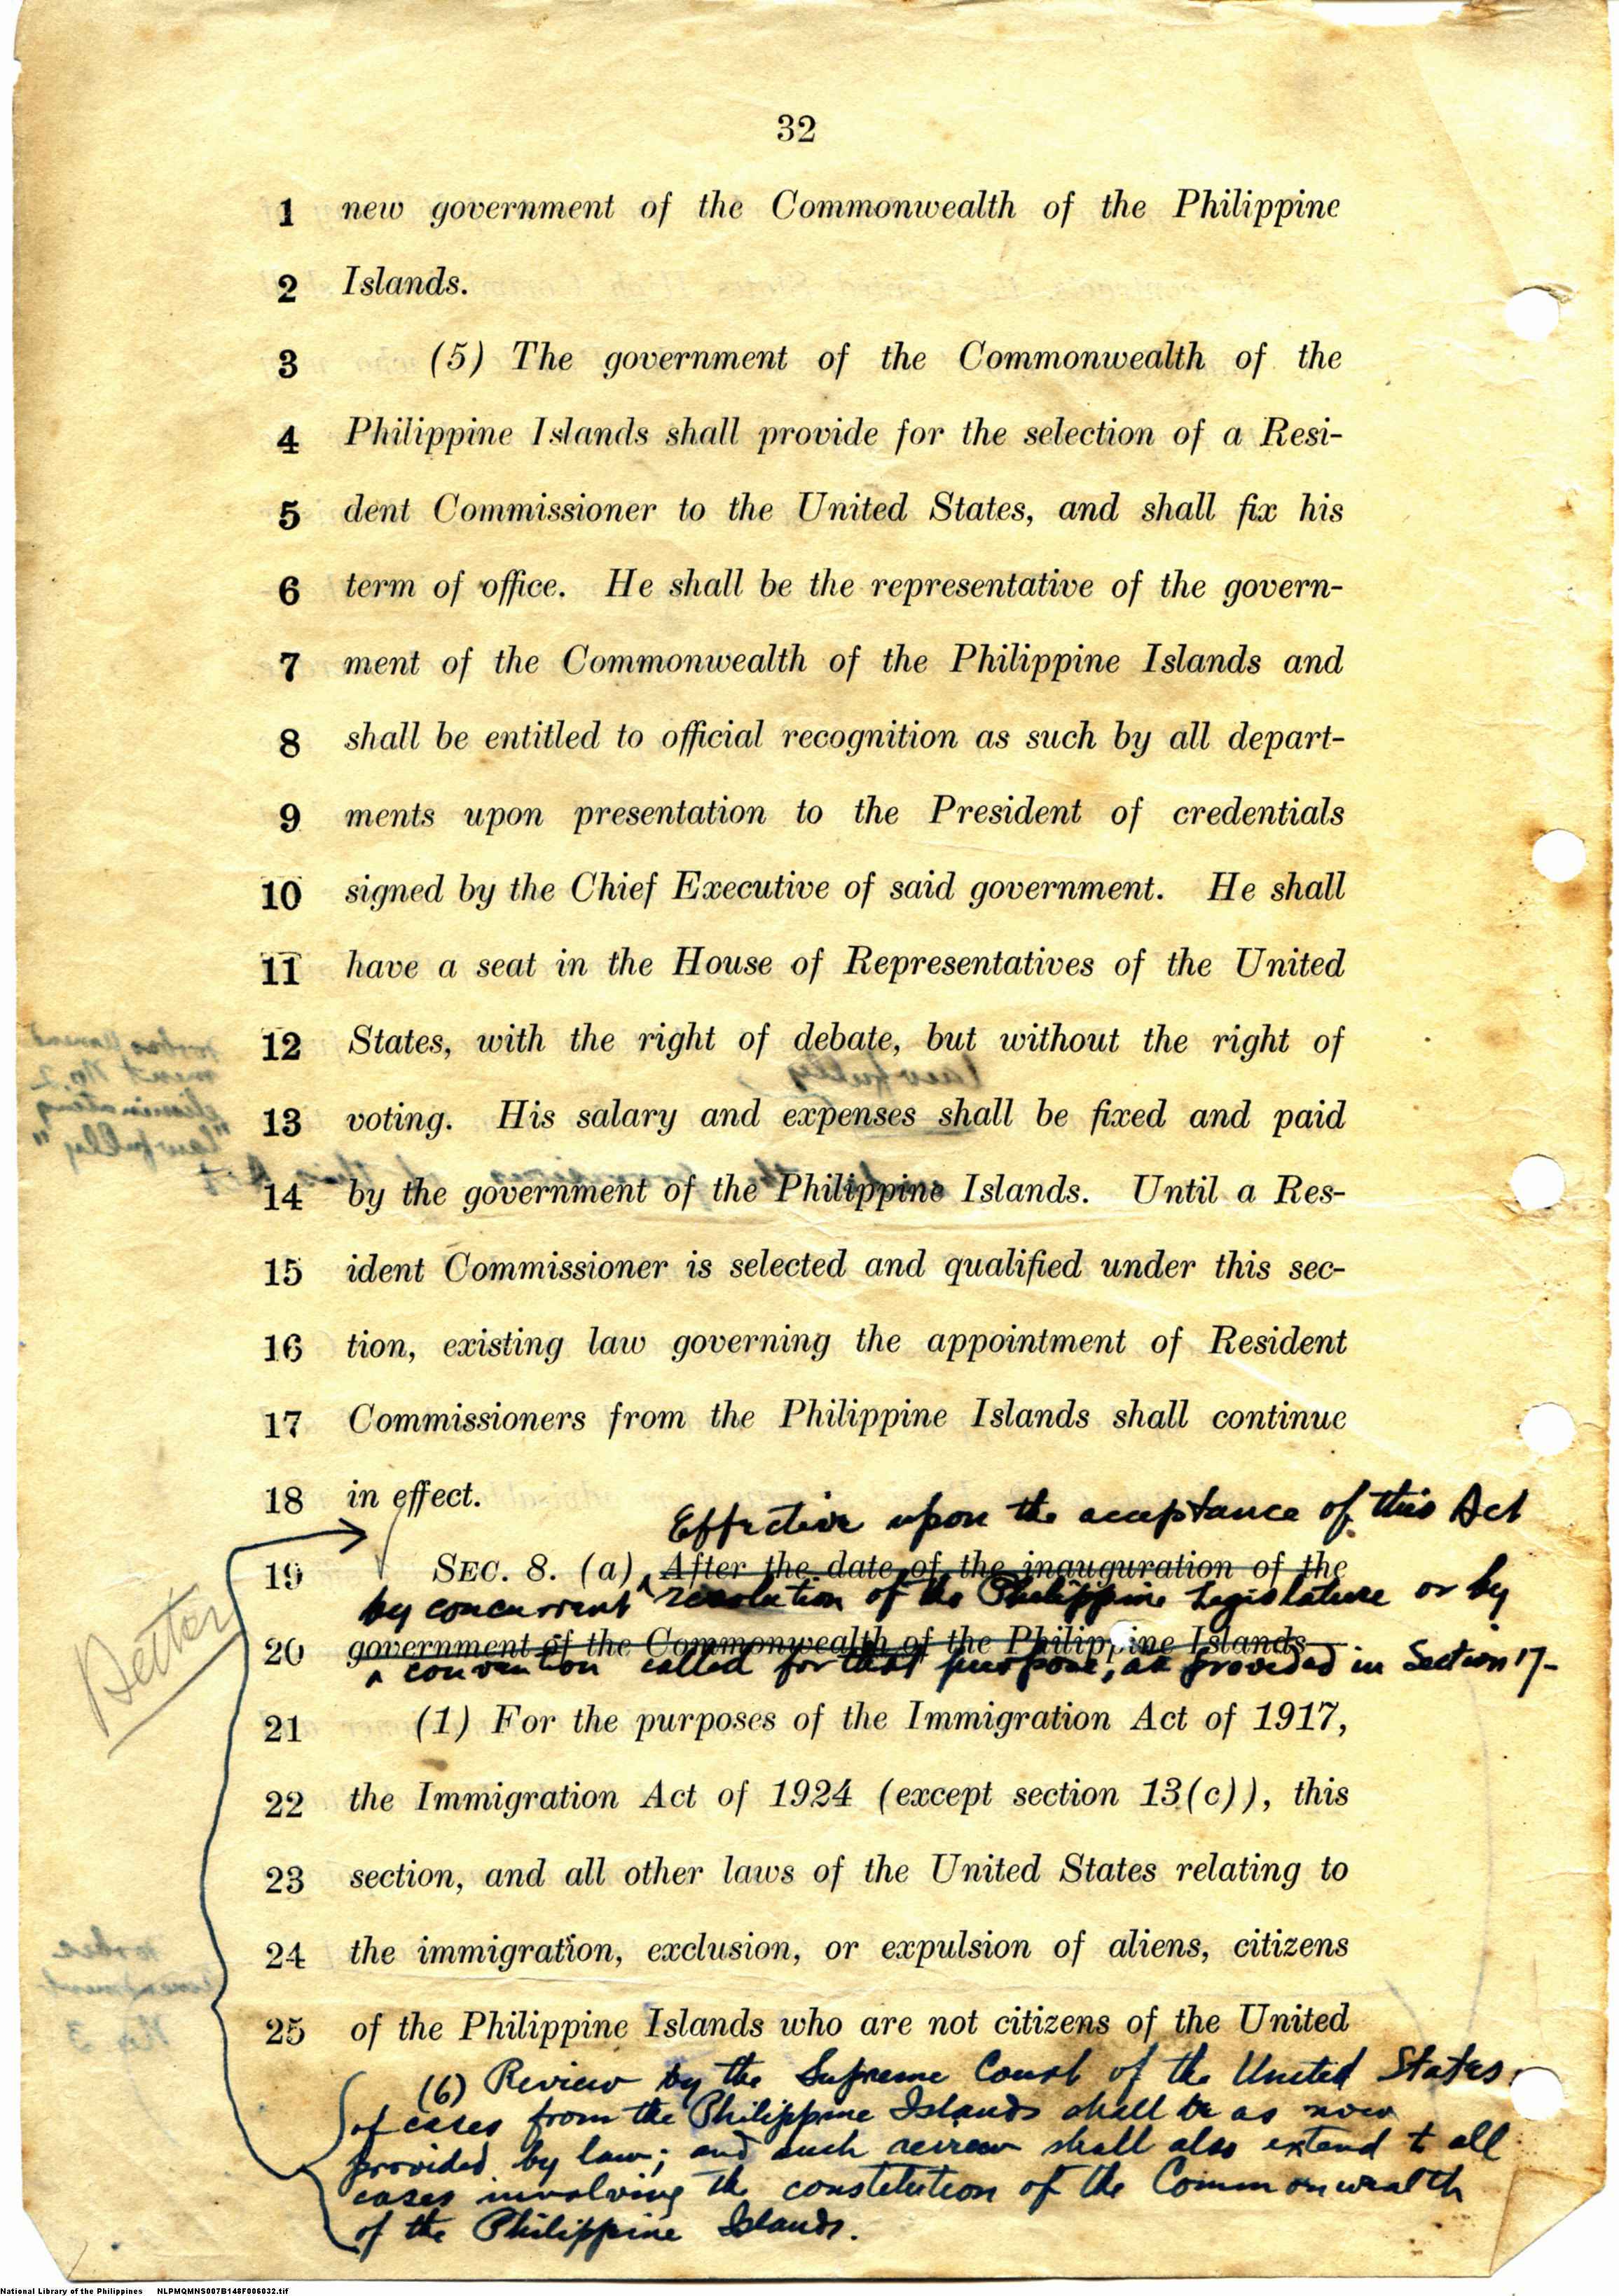 32
1 new government of the Commonwealth of the Philippine
2 Islands.
3 (5) The government of the Commonwealth of the
4 Philippine Islands shall provide for the selection of a Resi-
5 dent Commissioner to the United States, and shall fix his
6 term of office. He shall be the representative of the govern-
7 ment of the Commonwealth of the Philippine Islands and
8 shall be entitled to official recognition as such by all depart-
9 ments upon presentation to the President of credentials
10 signed by the Chief Executive of said government. He shall
11 have a seat in the House of Representatives of the United
12 States, with the right of debate, but without the right of
13 voting. His salary and expenses shall be fixed and paid
14 by the government of the Philippine Islands. Until a Res-
15 ident Commissioner is selected and qualified under this sec-
16 tion, existing law governing the appointment of Resident
17 Commissioners from the Philippine Islands shall continue
18 in effect.
Effective upon the acceptance of this Act
19 SEC. 8. (a) After the date of the inauguration of the
by concurrent resolution of the Philippine Legislature or by
20 government of the Commonwealth of the Philippine Islands
a convention called for that purpose, as provided in Section 17-
Better
21 (1) For the purposes of the Immigration Act of 1917,
22 the Immigration Act of 1924 (except section 13(c)), this
23 section, and all other laws of the United States relating to
24 the immigration, exclusion, or expulsion of aliens, citizens
25 of the Philippine Islands who are not citizens of the United
(6) Review by the Supreme Court of the United States
of cases from the Philippine Islands shall be as now
provided by law; and such review shall also extend to all
cases involving the constitution of the Commonwealth
of the Philippine Islands.
National Library of the Philippines NLPMQMNS007B148F006032.tif